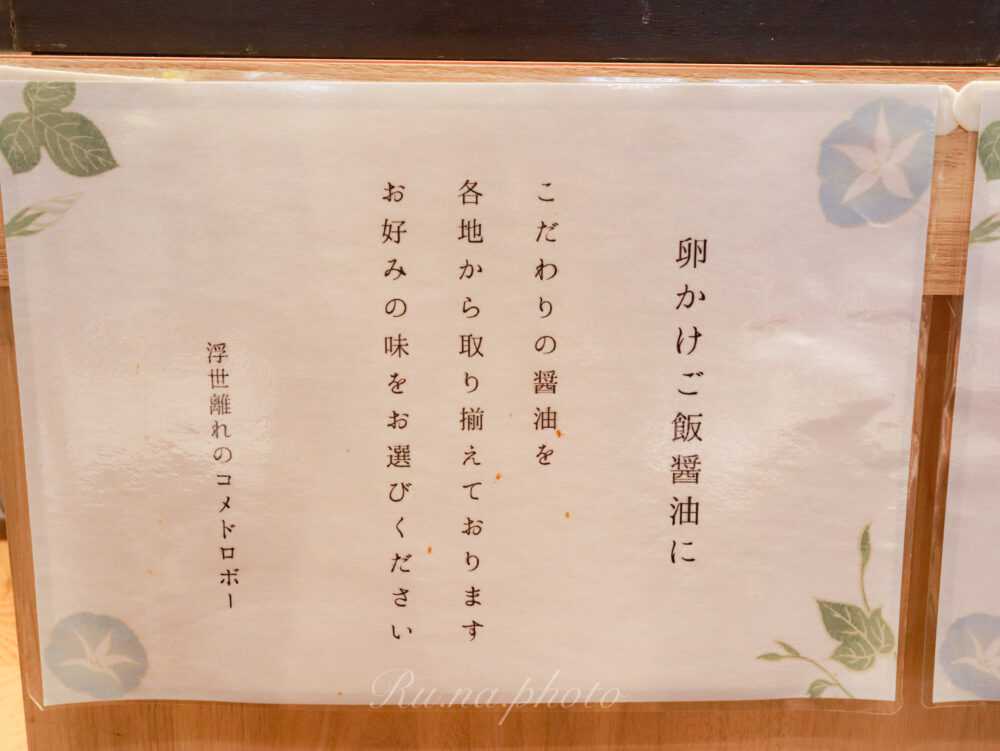 卵かけご飯醤油に
こだわりの醤油を
各地から取り揃えております
お好みの味をお選びください
浮世離れのコメドロボー
Ru.na.photo